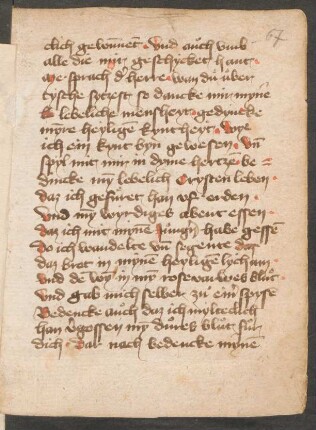 67
clich gewūnet · vnd auch vmb
alle die mir geschycket hant ·
sprach d' herre · wan du uber
tysche so dancke mir myne
lebeliche mensheyt · gedencke
myne heylige kyntheyt · wye
ich ein kynt byn gewesen · vn̄
spyl mit mir in dyme hertzē be=
dencke my lebelich crysten leben ·
daz ich gefuret han vf erden ·
vnd my wyrdiges abent essen ·
daz ich mit myne jungn̄ habe gessē
do ich wandelte vn̄ segente daz
daz brot in myne heylige lycham ·
vnd de wyn in mr rosevarwes blut ·
vnd gab mich selber zu ein' spyse
Bedencke auch daz ich mylteclich
han v'gossen my dures blut fur
dich · Dar nach bedencke myne